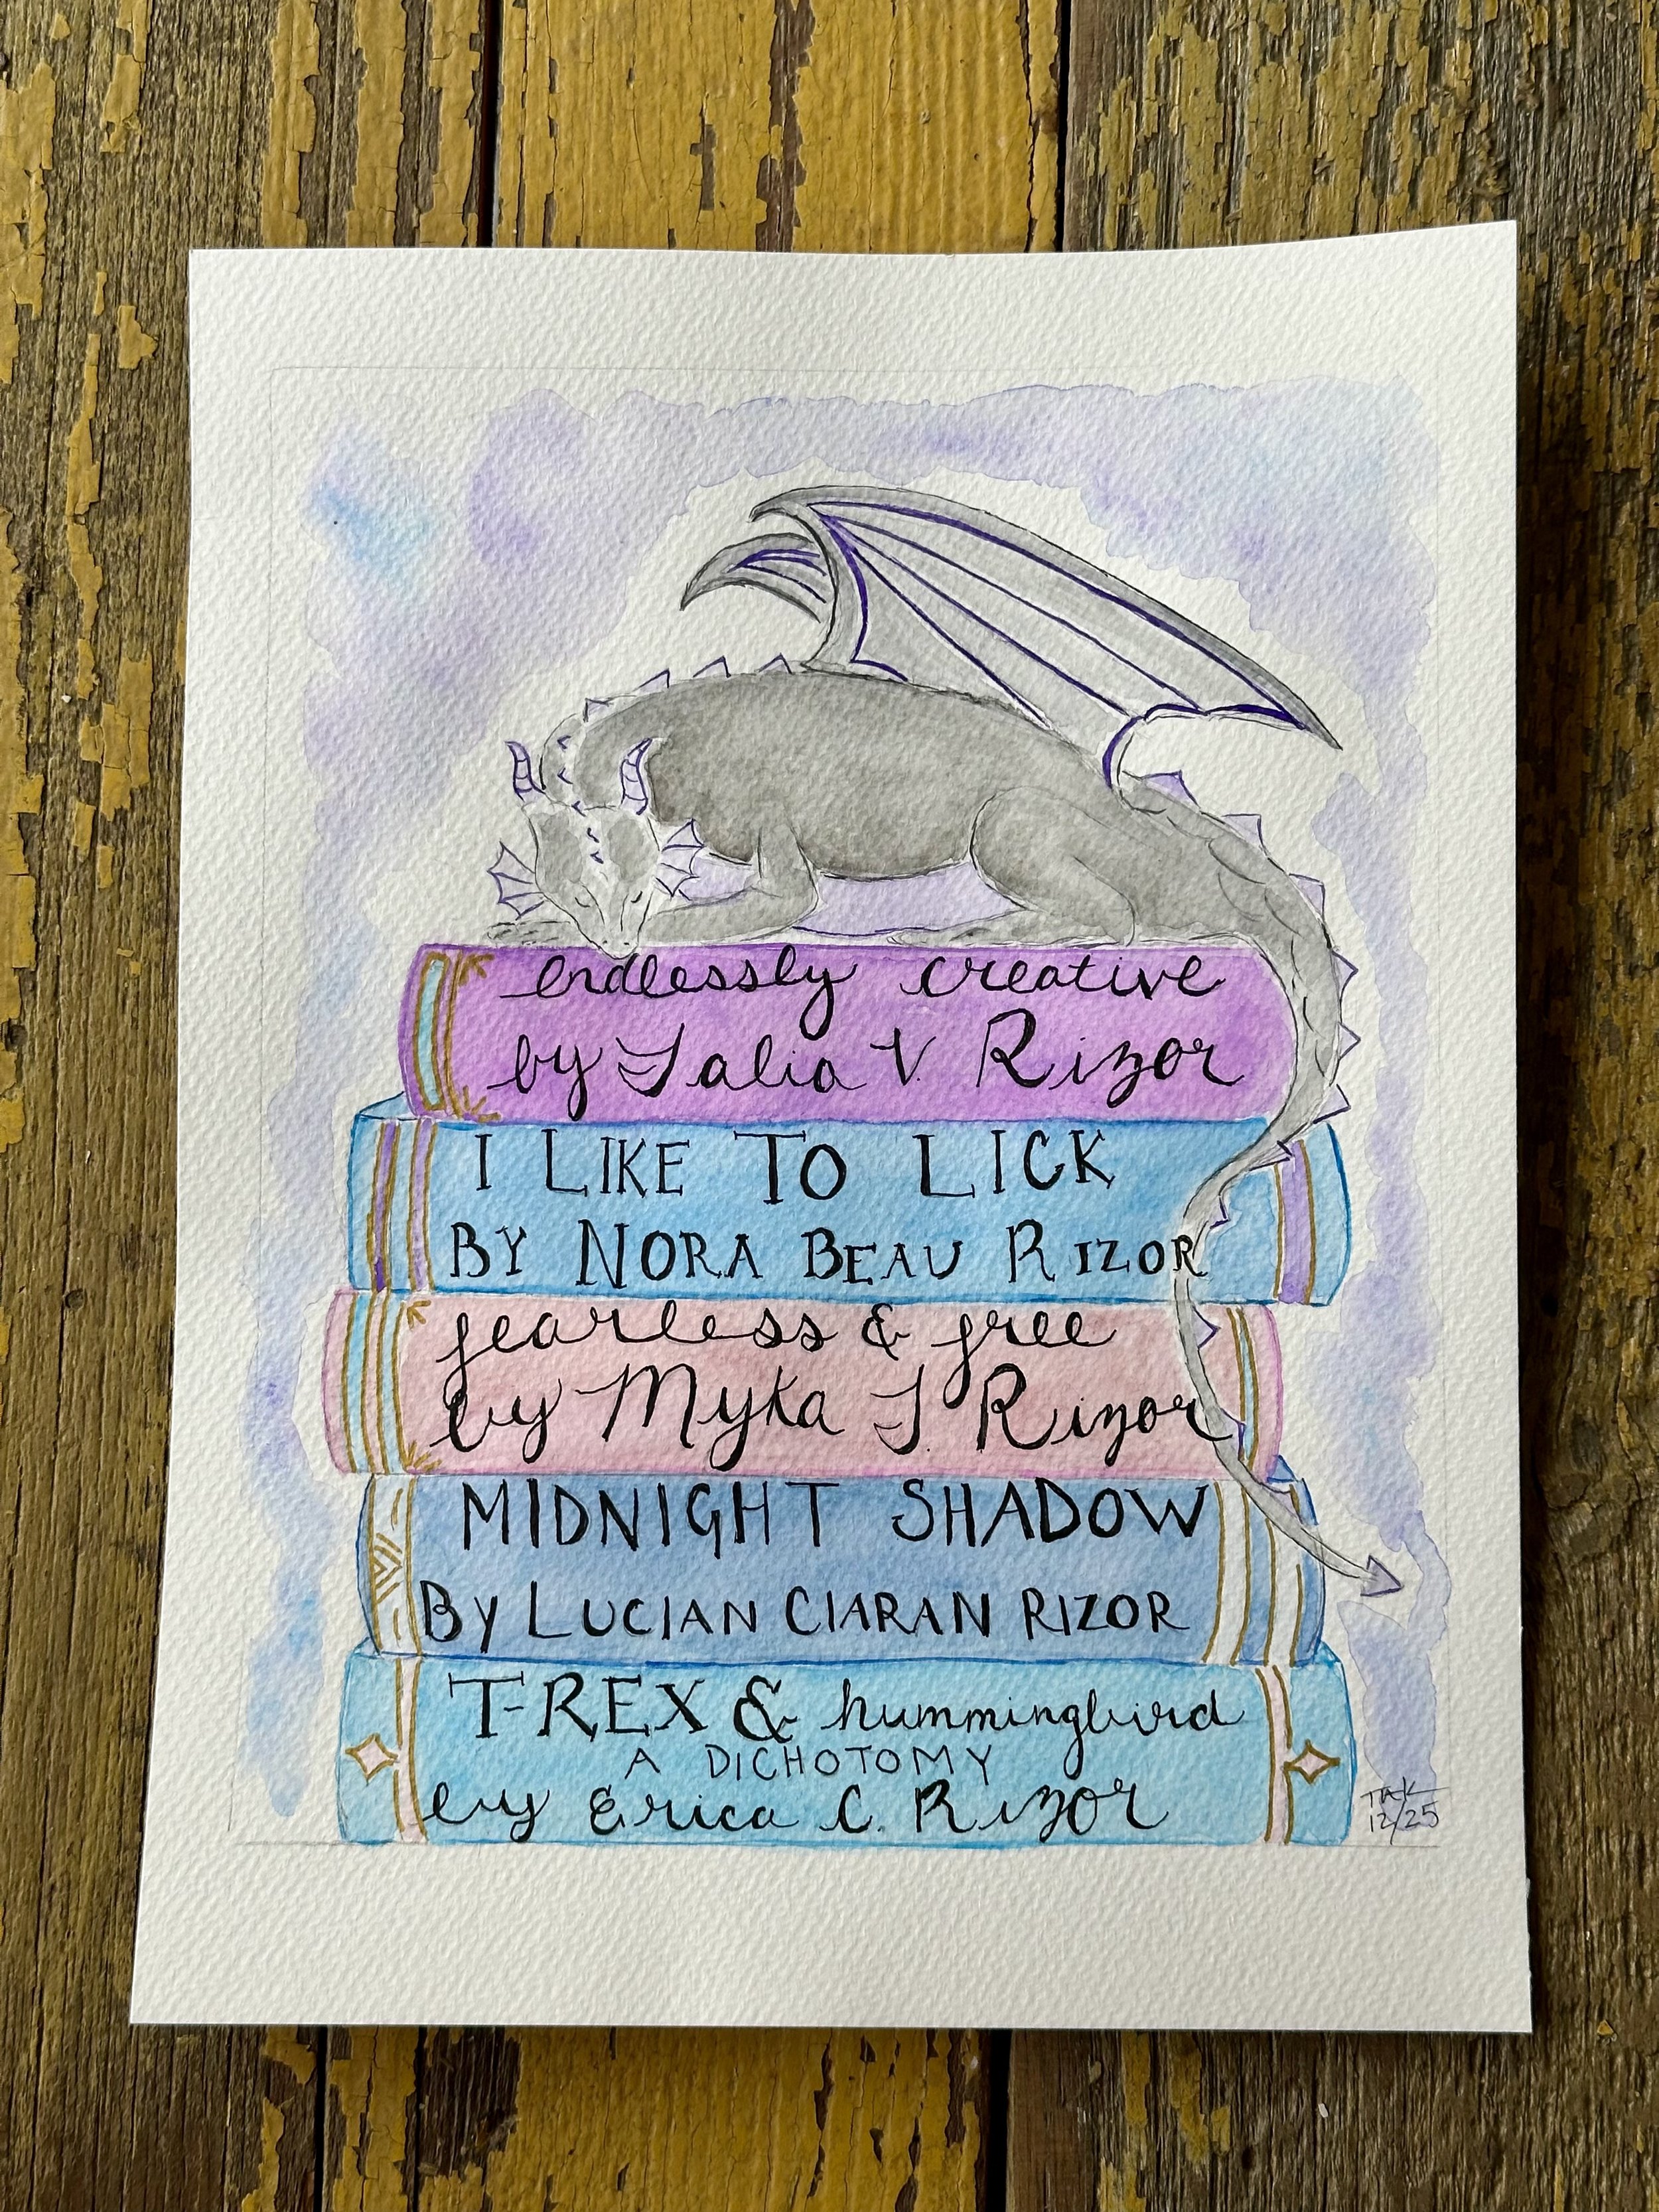 endlessly creative
by Talia V. Rizor
I LIKE TO LICK
BY NORA BEAU RIZOR
fearless & free
by Myka J. Rizor
MIDNIGHT SHADOW
By LUCIAN CIARAN RIZOR
T-REX & hummingbird
A DICHOTOMY
by Erica C. Rizor
12/25